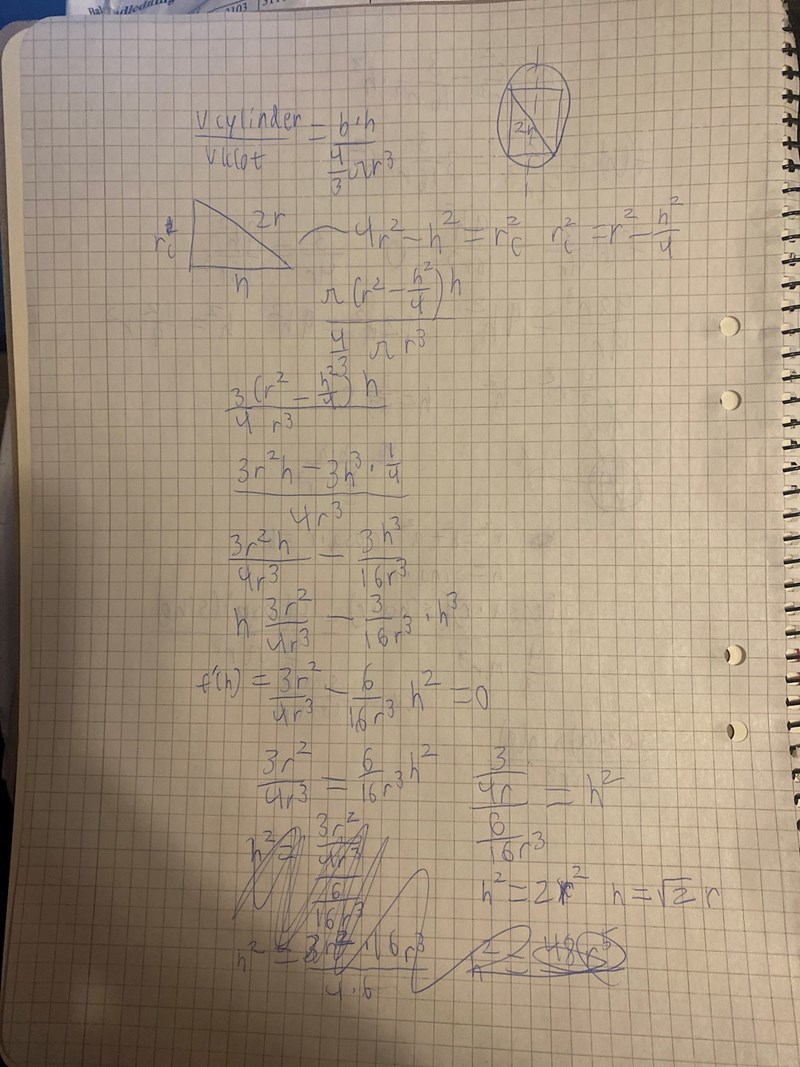 2103
V cylinder / V klot = b·h / (4/3 πr³)
2r
r_c 2r h ~ 4r² - h² = r_c² r_c² = r² - h²/4
π(r² - h²/4)h / (4/3 πr³)
3(r² - h²/4)h / 4r³
(3r²h - 3h³·1/4) / 4r³
3r²h/4r³ - 3h³/16r³
h 3r²/4r³ - 3/16r³ · h³
f'(h) = 3r²/4r³ - 6/16r³ h² = 0
3r²/4r³ = 6/16r³ h² (3/4r) / (6/16r³) = h²
h² = (3r²/4r³) / (6/16r³)
h² = 2r² h = √2 r
h² = 3r²·16r³ / 4·6